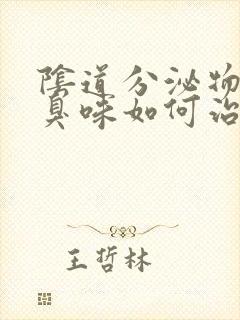 陰道分泌物
臭味如何治
王哲林